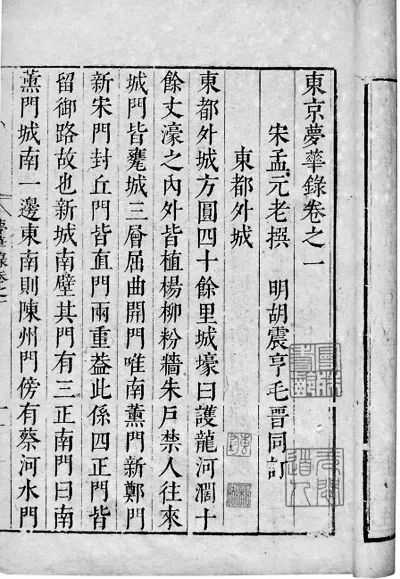 東京夢華錄卷之一
宋孟元老撰　明胡震亨毛晉同訂
東都外城
東都外城方圓四十餘里城壕曰護龍河濶十
餘丈濠之內外皆植楊柳粉牆朱戶禁人往來
城門皆甕城三層屈曲開門唯南薰門新鄭門
新宋門封丘門皆直門兩重蓋此係四正門皆
留御路故也新城南壁其門有三正南門曰南
薰門城南一邊東南則陳州門傍有蔡河水門